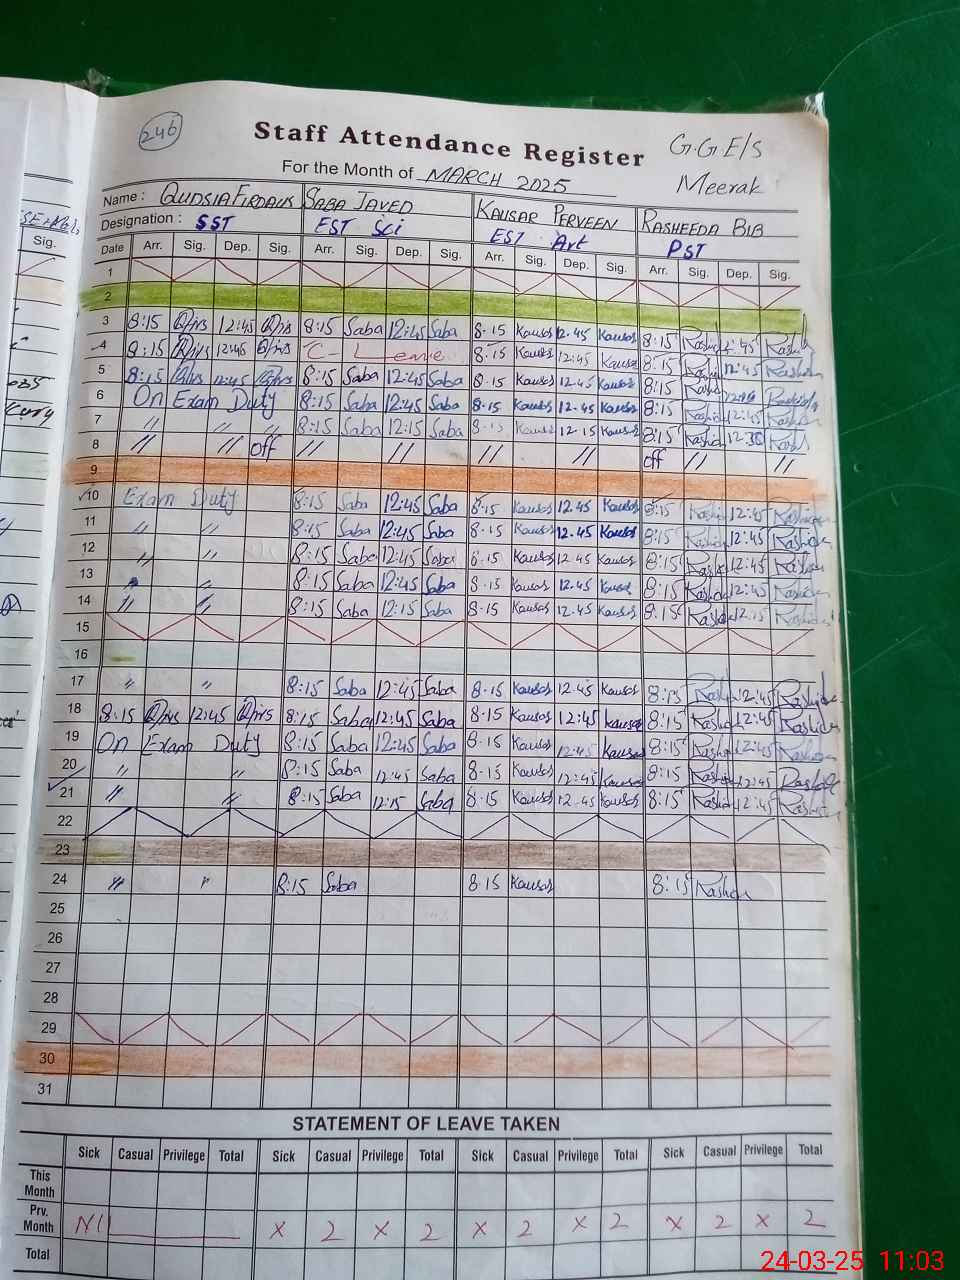 246
Staff Attendance Register
G.G.E/S
For the Month of MARCH 2025
Meerak
Name : QUDSIA FIRDAUS SABA JAVED KAUSAR PERVEEN RASHEEDA BIB
Designation : SST EST Sci EST Art PST
Date Arr. Sig. Dep. Sig. Arr. Sig. Dep. Sig. Arr. Sig. Dep. Sig. Arr. Sig. Dep. Sig.
1
2
3 8:15 12:45 8:15 Saba 12:45 Saba 8.15 Kausar 12.45 Kausar 8:15 12:45
4 8:15 12:45 C - Leave 8.15 Kausar 12:45 Kausar 8:15 12:45
5 8:15 12:45 8:15 Saba 12:45 Saba 8.15 Kausar 12.45 Kausar 8:15
6 On Exam Duty 8:15 Saba 12:45 Saba 8.15 Kausar 12.45 Kausar 8:15 12:45
7 " " " 8:15 Saba 12:15 Saba 8.15 Kausar 12.15 Kausar 8:15 12:30
8 " " off " " " " off " "
9
10 Exam Duty 8:15 Saba 12:45 Saba 8.15 Kausar 12.45 Kausar 8:15 12:45
11 " " 8:15 Saba 12:45 Saba 8.15 Kausar 12.45 Kausar 8:15 12:45
12 " " 8:15 Saba 12:45 Saba 8.15 Kausar 12.45 Kausar 8:15 12:45
13 " " 8:15 Saba 12:45 Saba 8.15 Kausar 12.45 Kausar 8:15 12:45
14 " " 8:15 Saba 12:15 Saba 8.15 Kausar 12.45 Kausar 8:15 12:15
15
16
17 " " 8:15 Saba 12:45 Saba 8.15 Kausar 12.45 Kausar 8:15 12:45
18 8:15 12:45 8:15 Saba 12:45 Saba 8.15 Kausar 12:45 Kausar 8:15 12:45
19 On Exam Duty 8:15 Saba 12:45 Saba 8.15 Kausar 12:45 Kausar 8:15 12:45
20 " " 8:15 Saba 12:45 Saba 8.15 Kausar 12:45 Kausar 8:15 12:45
21 " " 8:15 Saba 12:15 Saba 8.15 Kausar 12.45 Kausar 8:15 12:45
22
23
24 " " 8:15 Saba 8.15 Kausar 8:15
25
26
27
28
29
30
31
STATEMENT OF LEAVE TAKEN
Sick Casual Privilege Total Sick Casual Privilege Total Sick Casual Privilege Total Sick Casual Privilege Total
This Month
Prv. Month Nil x 2 x 2 x 2 x 2 x 2 x 2
Total
24-03-25 11:03